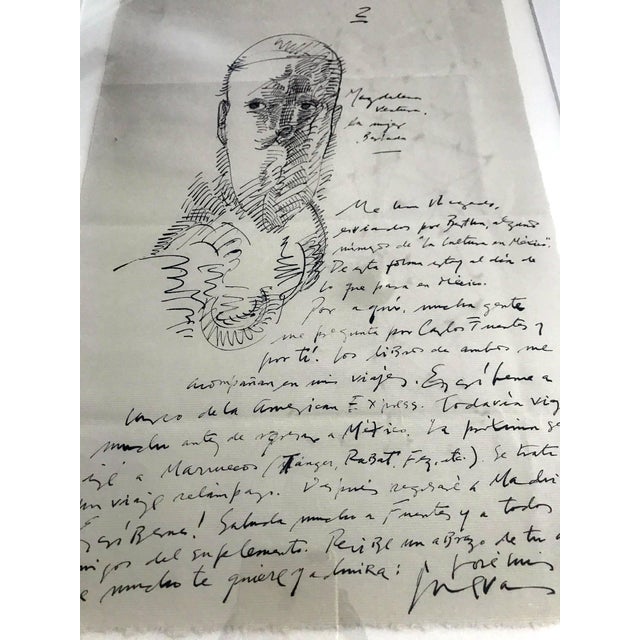 2
Magdalena
Ventura.
la mujer
Barbada
Me han llegado,
enviados por Bertha, algunos
números de "La Cultura en México".
De esta forma estoy al día de
lo que pasa en México.
Por aquí, mucha gente
me pregunta por Carlos Fuentes y
por ti. Los libros de ambos me
acompañan en mis viajes. Escríbeme a
cargo de la American Express. Todavía viaj
mucho antes de regresar a México. La próxima se
iré a Marruecos (Tánger, Rabat, Fez, etc.). Se trata
un viaje relámpago. Después regresaré a Madri
Escríbeme! Saluda mucho a Fuentes y a todos
migos del suplemento. Recibe un abrazo de tu a
e mucho te quiere y admira:
José Luis
Cuevas